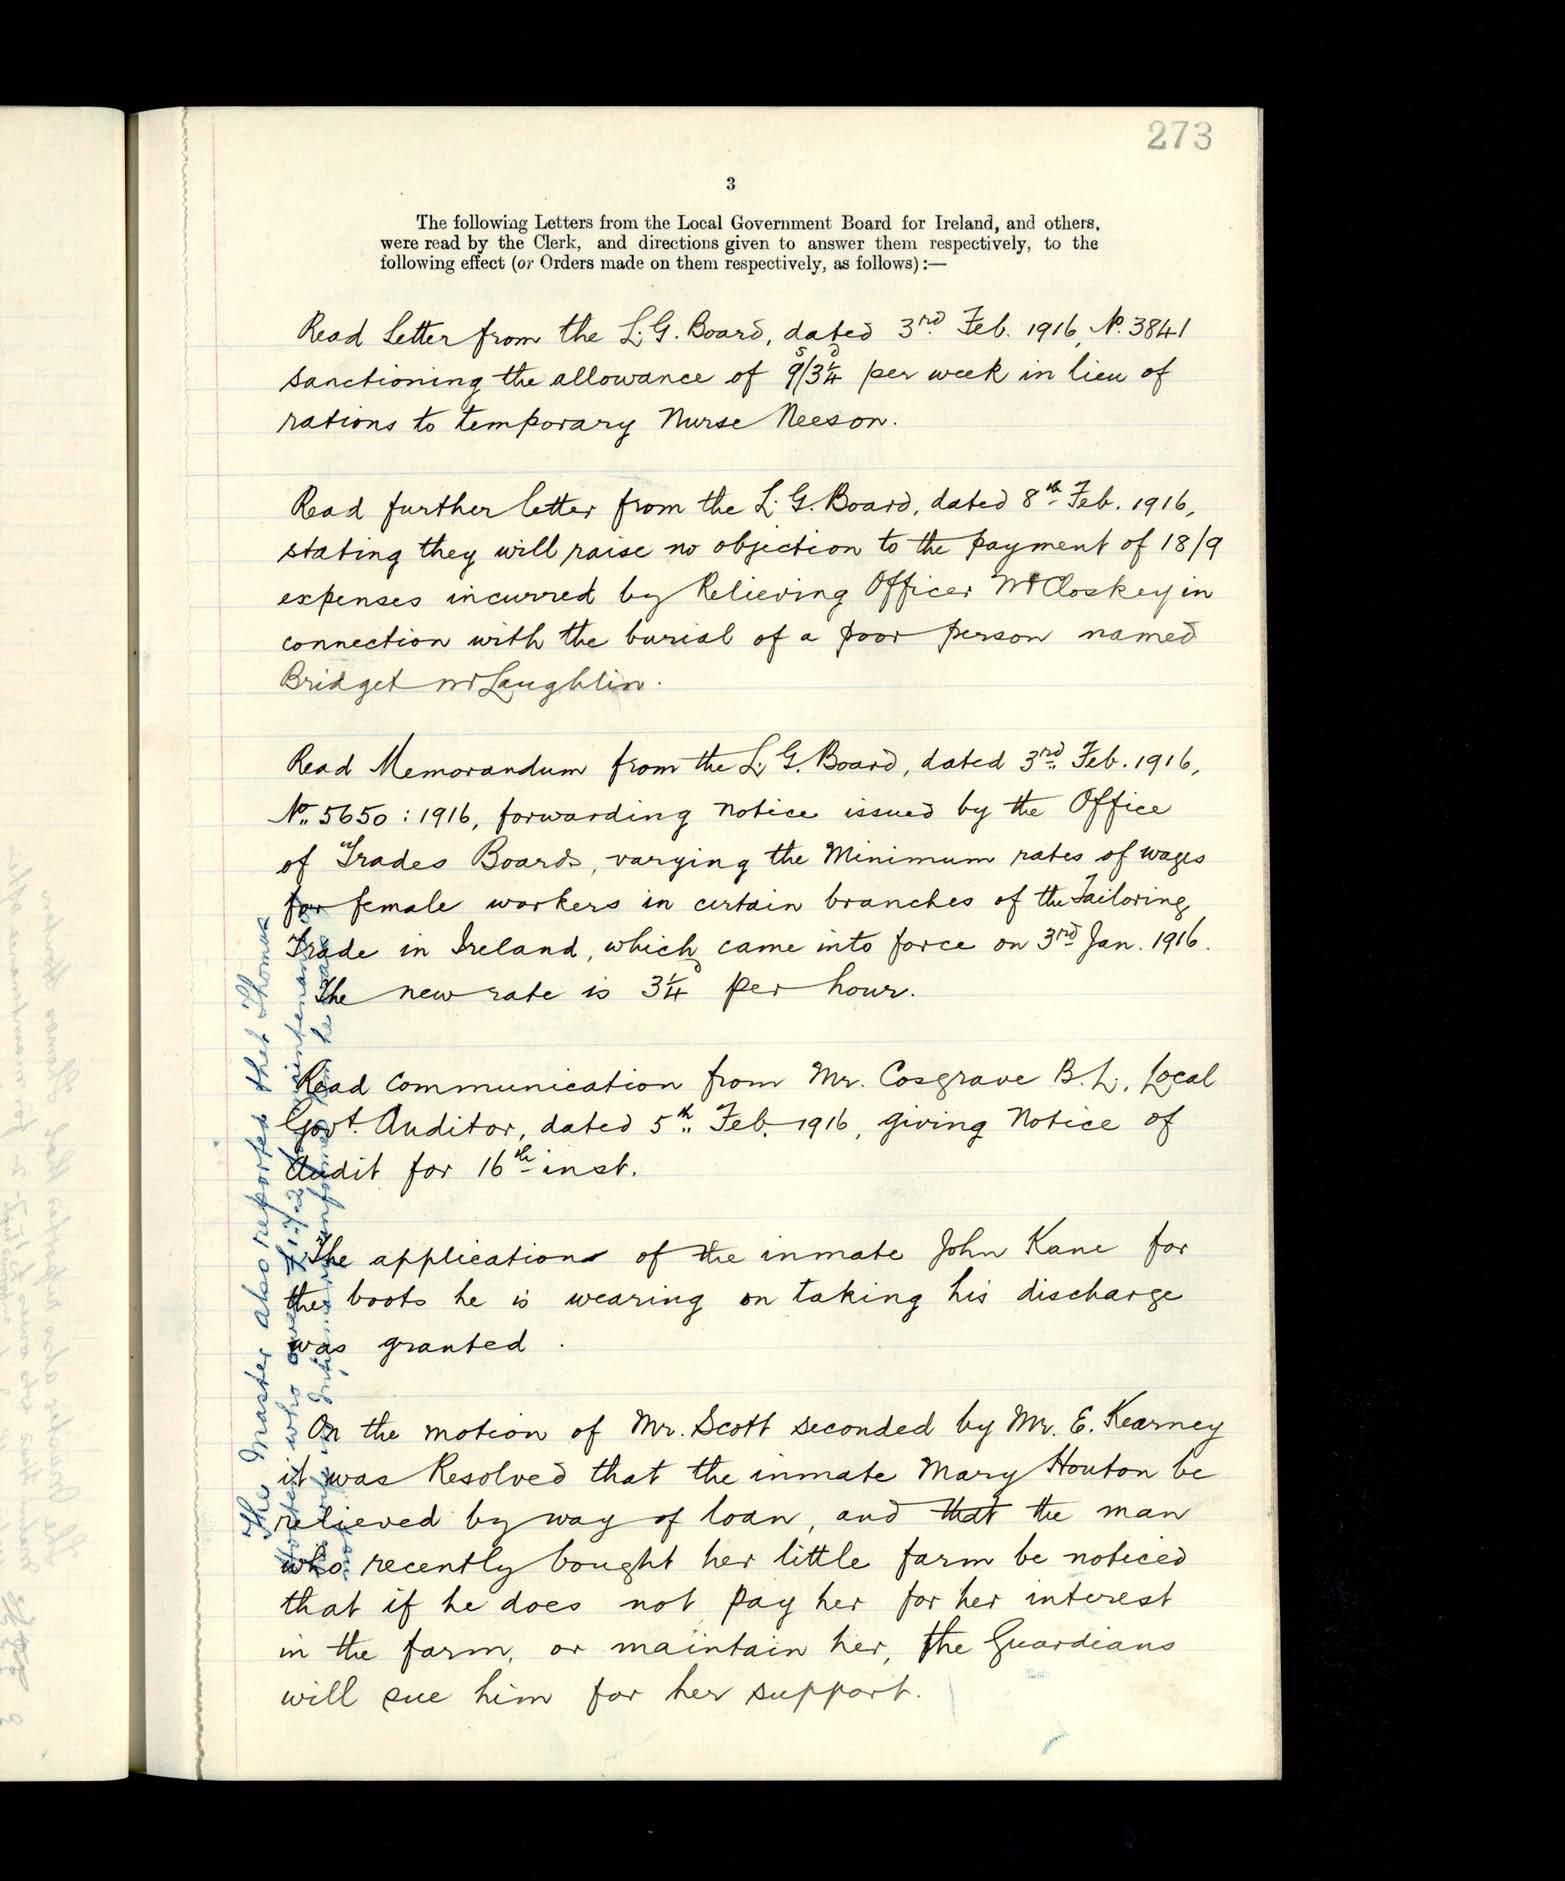 273
3
The following Letters from the Local Government Board for Ireland, and others,
were read by the Clerk, and directions given to answer them respectively, to the
following effect (or Orders made on them respectively, as follows):—
Read Letter from the L. G. Board, dated 3rd Feb. 1916, No. 3841
sanctioning the allowance of 9s/3¼d per week in lieu of
rations to temporary Nurse Neeson.
Read further letter from the L. G. Board, dated 8th Feb. 1916,
stating they will raise no objection to the payment of 18/9
expenses incurred by Relieving Officer McCloskey in
connection with the burial of a poor person named
Bridget McLaughlin.
Read Memorandum from the L. G. Board, dated 3rd Feb. 1916,
No. 5650 : 1916, forwarding notice issued by the Office
of Trades Boards, varying the Minimum rates of wages
for female workers in certain branches of the Tailoring
Trade in Ireland, which came into force on 3rd Jan. 1916.
The new rate is 3¼d per hour.
Read communication from Mr. Cosgrave B.L. Local
Govt. Auditor, dated 5th Feb. 1916, giving Notice of
Audit for 16th inst.
The application of the inmate John Kane for
the boots he is wearing on taking his discharge
was granted.
On the motion of Mr. Scott seconded by Mr. E. Kearney
it was Resolved that the inmate Mary Houton be
relieved by way of loan, and that the man
who recently bought her little farm be noticed
that if he does not pay her for her interest
in the farm, or maintain her, the Guardians
will sue him for her support.
The Master also reported that Thomas
who owes maintenance
he was